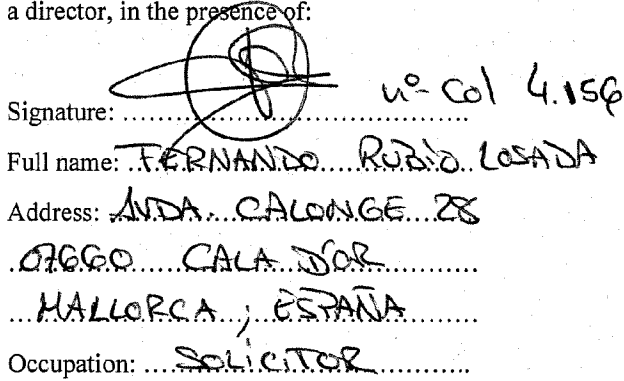 a director, in the presence of:
Signature: nº Col 4.156
Full name: FERNANDO RUBIO LOSADA
Address: AVDA. CALONGE 28
07660 CALA D'OR
MALLORCA ; ESPAÑA
Occupation: SOLICITOR